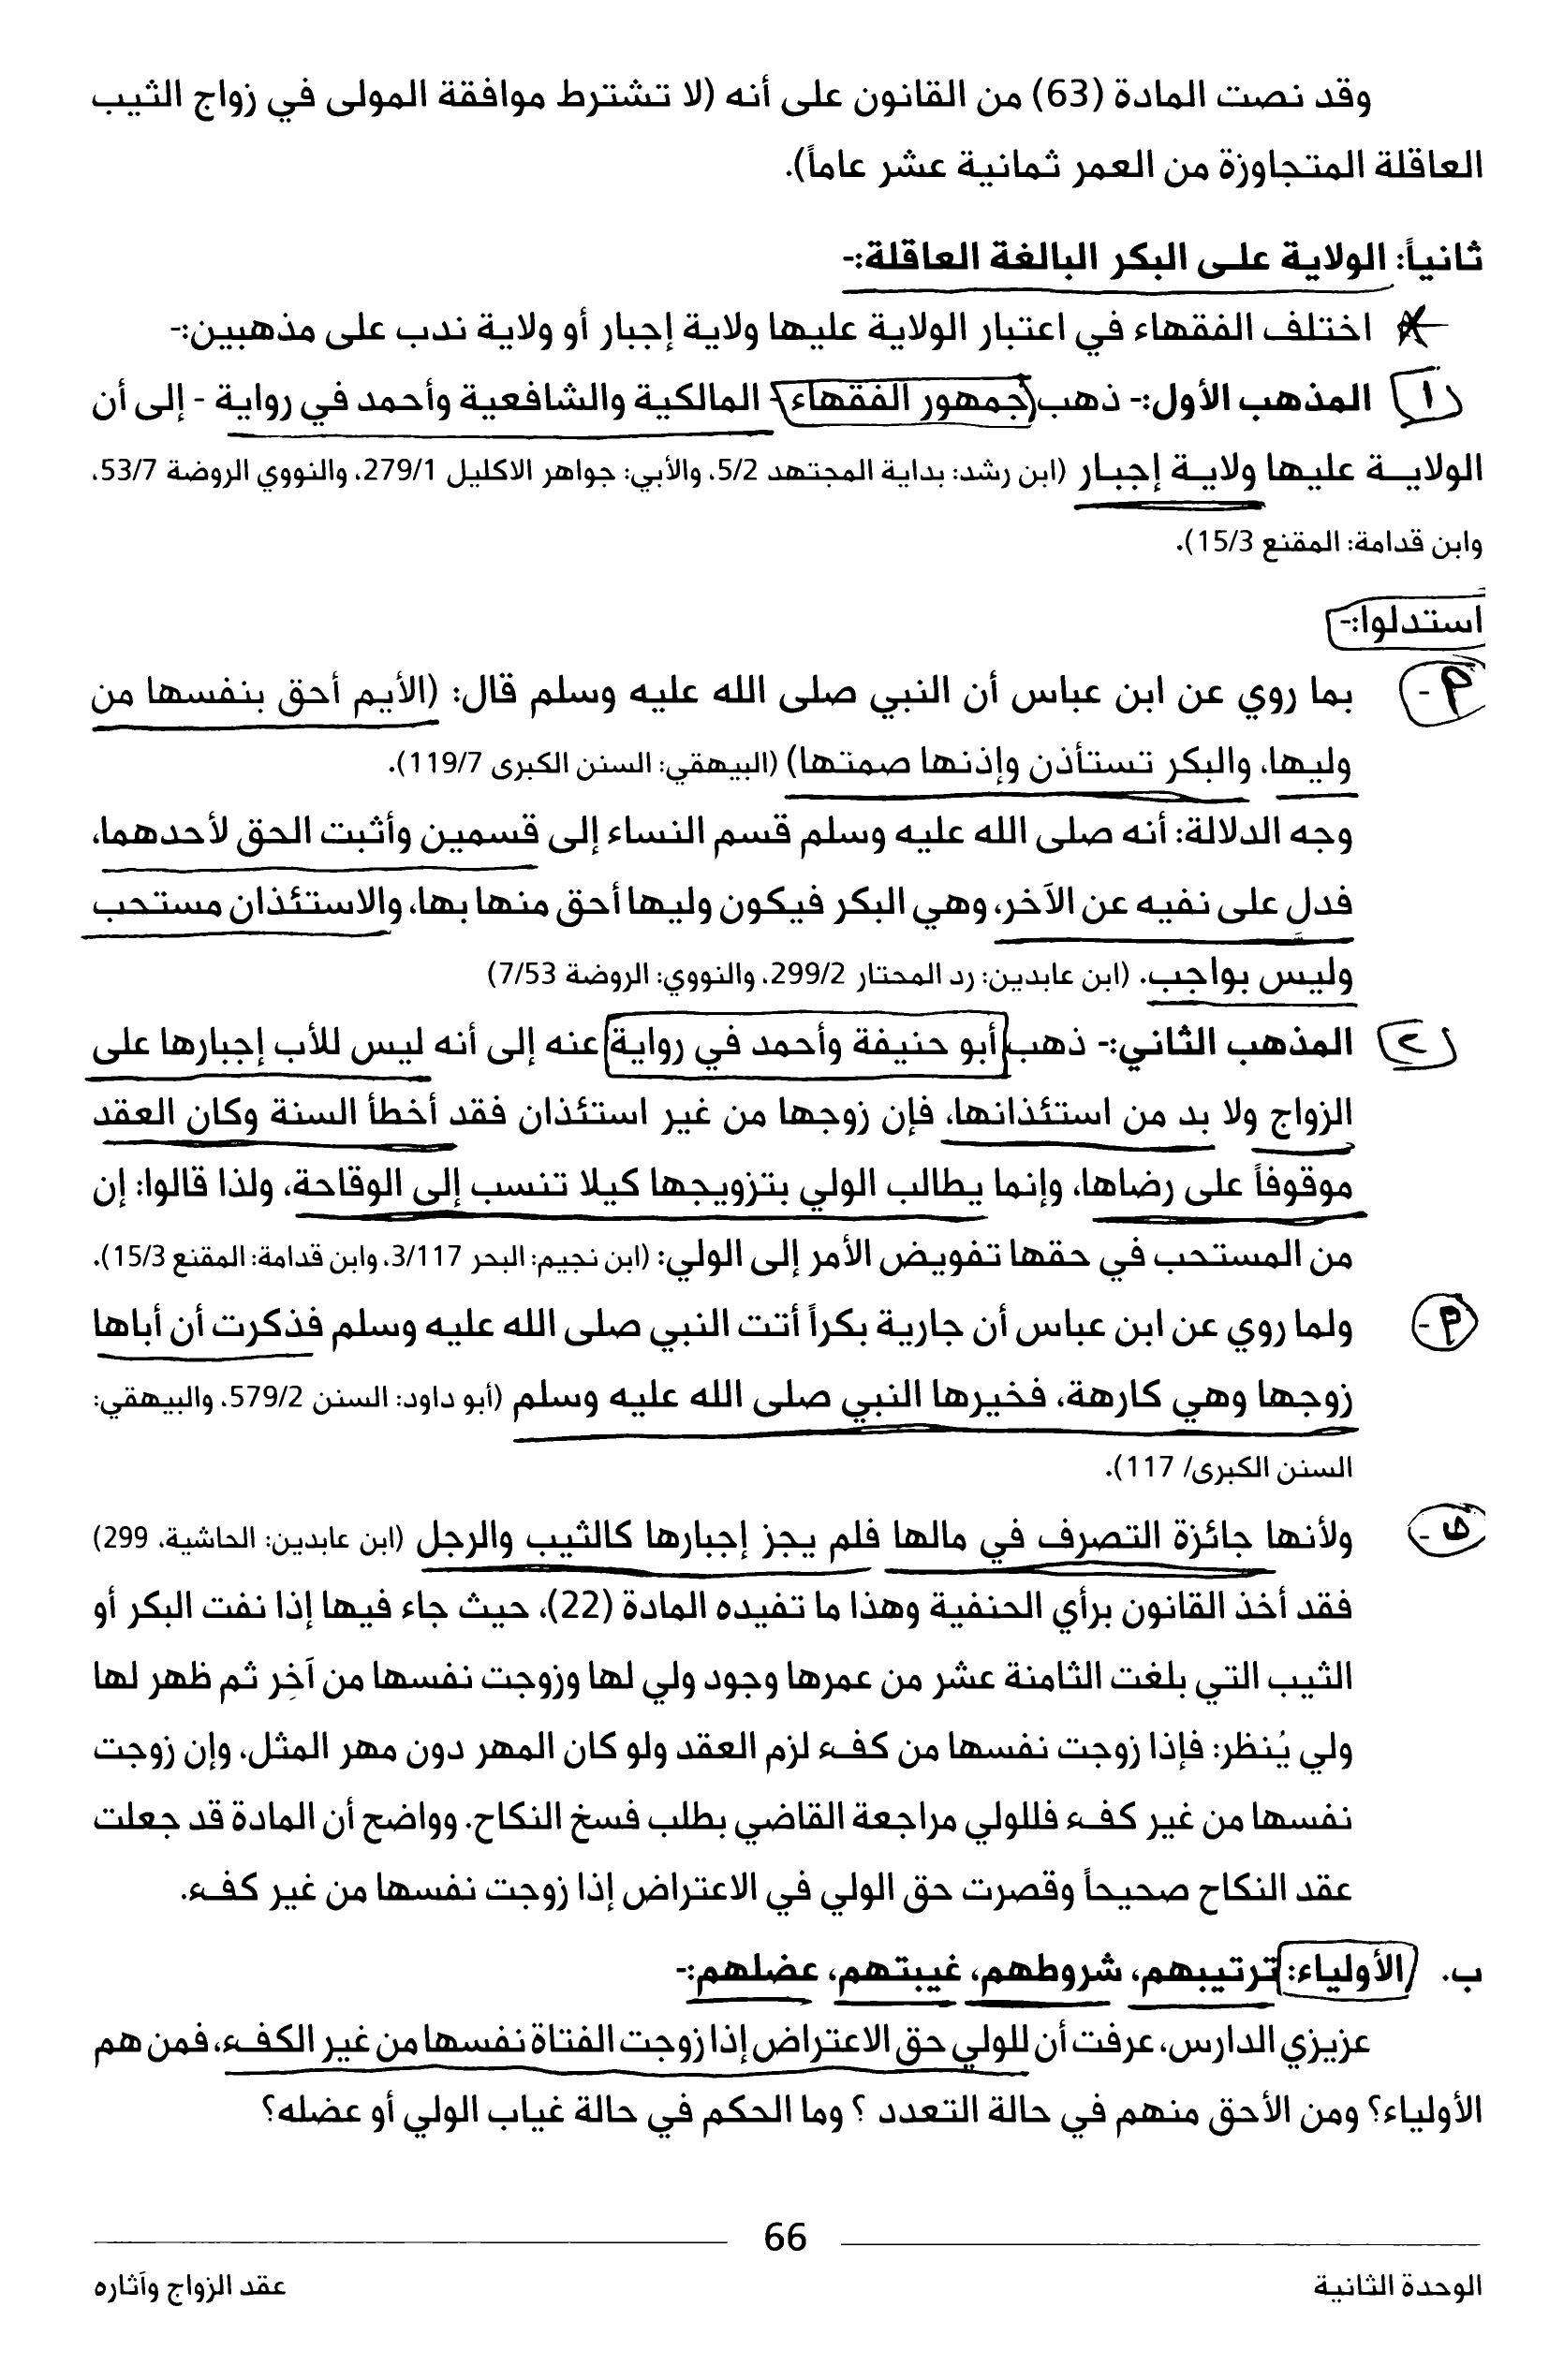 وقد نصت المادة (63) من القانون على أنه (لا تشترط موافقة المولى في زواج الثيب
العاقلة المتجاوزة من العمر ثمانية عشر عاماً).
ثانياً: الولاية على البكر البالغة العاقلة:-
اختلف الفقهاء في اعتبار الولاية عليها ولاية إجبار أو ولاية ندب على مذهبين:-
١ المذهب الأول:- ذهب جمهور الفقهاء - المالكية والشافعية وأحمد في رواية - إلى أن
الولايـــة عليها ولايـة إجبـار (ابن رشد: بداية المجتهد 5/2، والأبي: جواهر الاكليل 279/1، والنووي الروضة 53/7،
وابن قدامة: المقنع 15/3).
استدلوا:-
م- بما روي عن ابن عباس أن النبي صلى الله عليه وسلم قال: (الأيم أحق بنفسها من
وليها، والبكر تستأذن وإذنها صمتها) (البيهقي: السنن الكبرى 119/7).
وجه الدلالة: أنه صلى الله عليه وسلم قسم النساء إلى قسمين وأثبت الحق لأحدهما،
فدل على نفيه عن الآخر، وهي البكر فيكون وليها أحق منها بها، والاستئذان مستحب
وليس بواجب. (ابن عابدين: رد المحتار 299/2، والنووي: الروضة 7/53)
٢ المذهب الثاني:- ذهب أبو حنيفة وأحمد في رواية عنه إلى أنه ليس للأب إجبارها على
الزواج ولا بد من استئذانها، فإن زوجها من غير استئذان فقد أخطأ السنة وكان العقد
موقوفاً على رضاها، وإنما يطالب الولي بتزويجها كيلا تنسب إلى الوقاحة، ولذا قالوا: إن
من المستحب في حقها تفويض الأمر إلى الولي: (ابن نجيم: البحر 3/117، وابن قدامة: المقنع 15/3).
م- ولما روي عن ابن عباس أن جارية بكراً أتت النبي صلى الله عليه وسلم فذكرت أن أباها
زوجها وهي كارهة، فخيرها النبي صلى الله عليه وسلم (أبو داود: السنن 579/2، والبيهقي:
السنن الكبرى/ 117).
ولأنها جائزة التصرف في مالها فلم يجز إجبارها كالثيب والرجل (ابن عابدين: الحاشية، 299)
فقد أخذ القانون برأي الحنفية وهذا ما تفيده المادة (22)، حيث جاء فيها إذا نفت البكر أو
الثيب التي بلغت الثامنة عشر من عمرها وجود ولي لها وزوجت نفسها من آخر ثم ظهر لها
ولي يُنظر: فإذا زوجت نفسها من كفء لزم العقد ولو كان المهر دون مهر المثل، وإن زوجت
نفسها من غير كفء فللولي مراجعة القاضي بطلب فسخ النكاح. وواضح أن المادة قد جعلت
عقد النكاح صحيحاً وقصرت حق الولي في الاعتراض إذا زوجت نفسها من غير كفء.
ب. الأولياء: ترتيبهم، شروطهم، غيبتهم، عضلهم:-
عزيزي الدارس، عرفت أن للولي حق الاعتراض إذا زوجت الفتاة نفسها من غير الكفء، فمن هم
الأولياء؟ ومن الأحق منهم في حالة التعدد ؟ وما الحكم في حالة غياب الولي أو عضله؟
66
الوحدة الثانية
عقد الزواج وآثاره